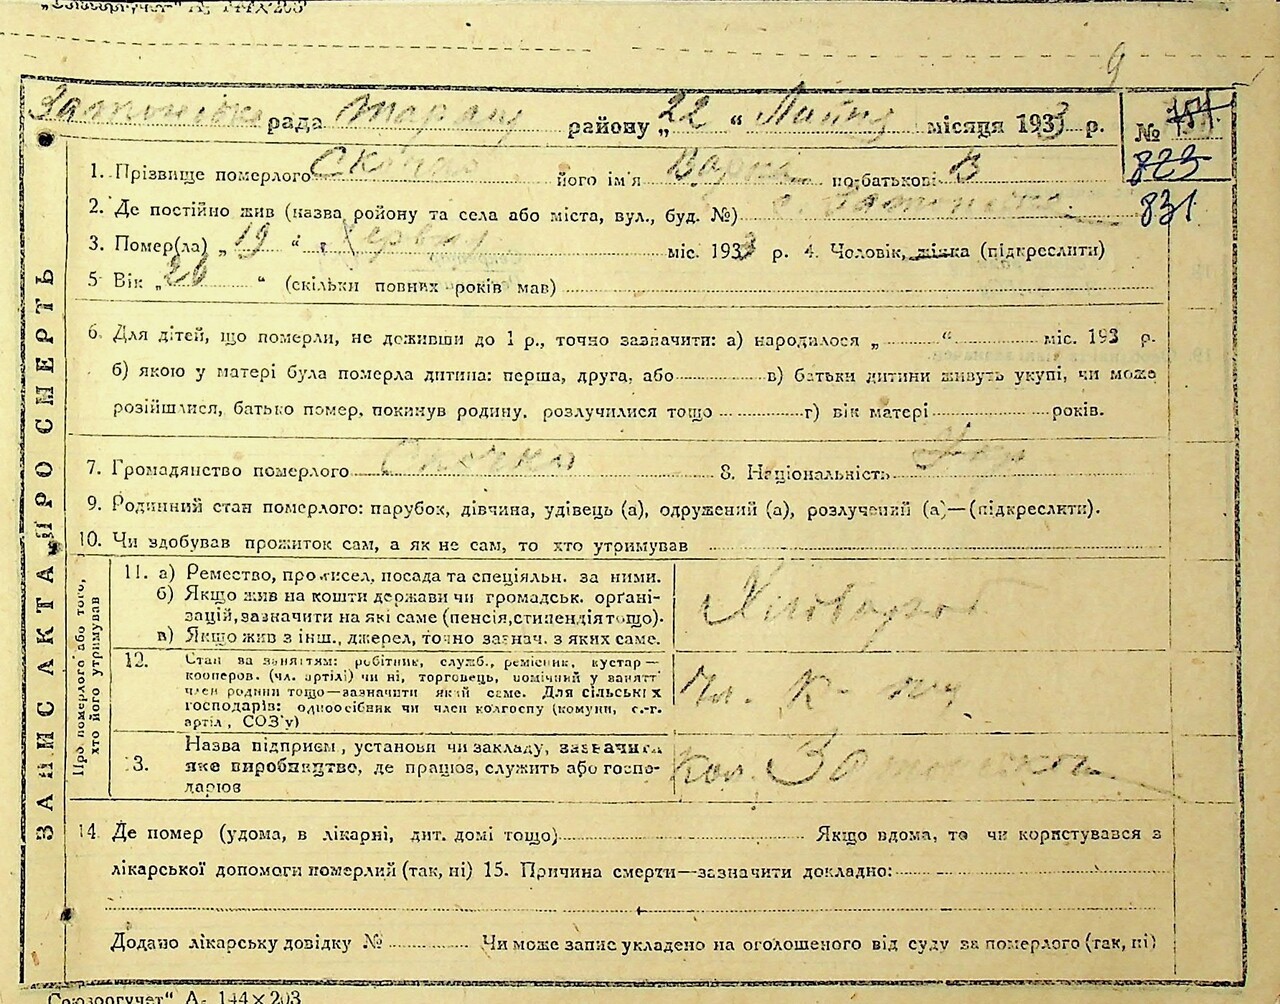 „Союзоргучет" А. 144×203
9
рада районну „22 “ місяця 1933 р. №
823
831
1. Прізвище померлого його ім'я Варка по батькові В
2. Де постійно жив (назва району та села або міста, вул., буд. №) с.
3. Помер(ла) „19 “ Червня міс. 1933 р. 4. Чоловік, жінка (підкреслити)
5 Вік „20 “ (скільки повних років мав)
6. Для дітей, що померли, не доживши до 1 р., точно зазначити: а) народилося „ “ міс. 193 р.
б) якою у матері була померла дитина: перша, друга, або в) батьки дитини живуть укупі, чи може
розійшлися, батько помер, покинув родину, розлучилися тощо г) вік матері років.
7. Громадянство померлого 8. Національність Укр
9. Родинний стан померлого: парубок, дівчина, удівець (а), одружений (а), розлучений (а)—(підкреслити).
10. Чи здобував прожиток сам, а як не сам, то хто утримував
ЗАПИС АКТА ПРО СМЕРТЬ
Про померлого або того, хто його утримував
11. а) Ремество, промисел, посада та спеціяльн. за ними.
б) Якщо жив на кошти держави чи громадськ. орґані-
зацій, зазначити на які саме (пенсія, стипендія тощо).
в) Якщо жив з інш., джерел, точно зазнач. з яких саме.
Хлібороб
12. Стан за заняттям: робітник, служб., ремісник, кустар—
кооперов. (чл. артілі) чи ні, торговець, помічний у занятт
член родини тощо—зазначити який саме. Для сільськіх
господарів: одноосібник чи член колгоспу (комуни, с.-г.
артіл, СОЗ'у)
Чл. К-
13. Назва підприєм, установи чи закладу, зазначити
яке виробництво, де працюв, служить або госпо-
дарюв
Кол.
14. Де помер (удома, в лікарні, дит. домі тощо) Якщо вдома, то чи користувався з
лікарської допомоги померлий (так, ні) 15. Причина смерти—зазначити докладно:
Додано лікарську довідку № Чи може запис укладено на оголошеного від суду за померлого (так, ні)
Союзоргучет" А. 144×203